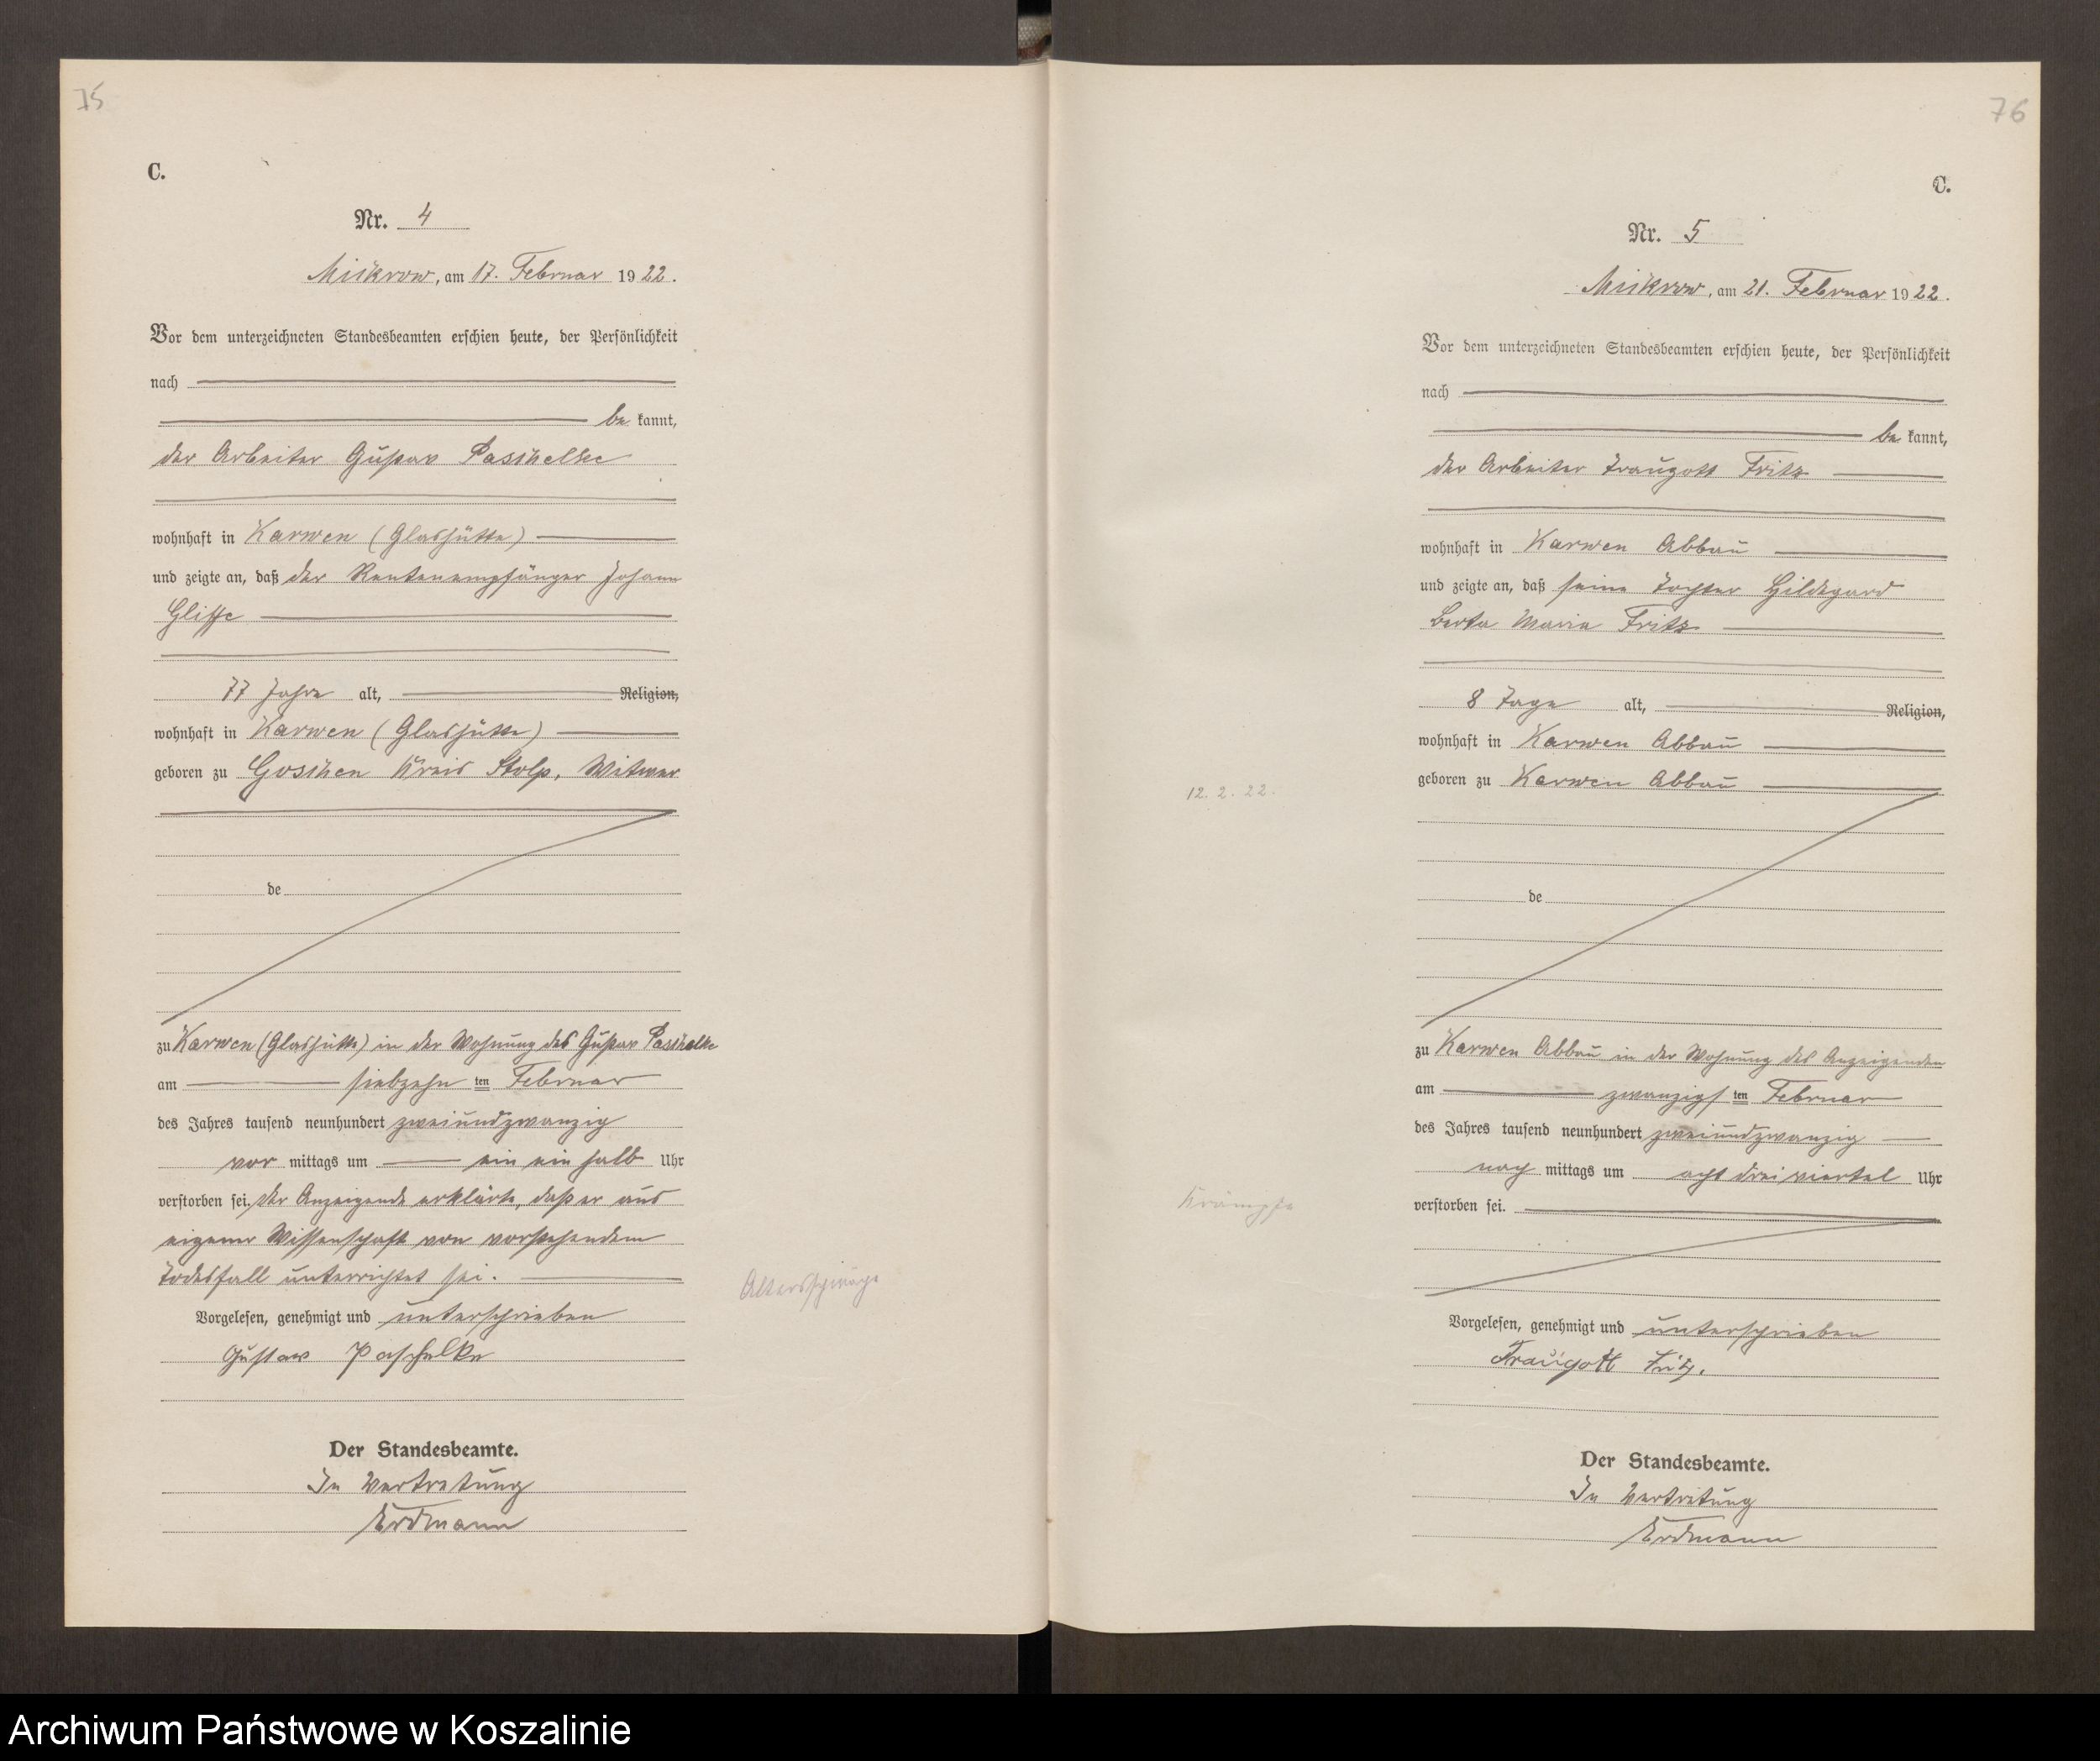 75
C.
Nr. 4
Mickrow, am 17. Februar 1922.
Vor dem unterzeichneten Standesbeamten erschien heute, der Persönlichkeit
nach
be kannt,
der Arbeiter Gustav Paschelke
wohnhaft in Karwen (Glashütte)
und zeigte an, daß der Rentenempfänger Johann
Gliffe
77 Jahre alt, Religion,
wohnhaft in Karwen (Glashütte)
geboren zu Goschen Kreis Stolp, Witwer
de
zu Karwen (Glashütte) in der Wohnung des Gustav Paschelke
am siebzehn ten Februar
des Jahres tausend neunhundert zweiundzwanzig
vor mittags um ein ein halb Uhr
verstorben sei. Der Anzeigende erklärte, daß er aus
eigener Wissenschaft von vorstehendem
Todesfall unterrichtet sei.
Altersschwäche
Vorgelesen, genehmigt und unterschrieben
Gustav Paschelke
Der Standesbeamte.
In Vertretung
Erdmann
76
C.
Nr. 5
Mickrow, am 21. Februar 1922.
Vor dem unterzeichneten Standesbeamten erschien heute, der Persönlichkeit
nach
be kannt,
der Arbeiter Traugott Fritz
wohnhaft in Karwen Abbau
und zeigte an, daß seine Tochter Hildegard
Berta Maria Fritz
8 Tage alt, Religion,
wohnhaft in Karwen Abbau
geboren zu Karwen Abbau
12. 2. 22.
de
zu Karwen Abbau in der Wohnung des Anzeigenden
am zwanzigs ten Februar
des Jahres tausend neunhundert zweiundzwanzig
nach mittags um acht drei viertel Uhr
verstorben sei.
Krämpfe
Vorgelesen, genehmigt und unterschrieben
Traugott Fritz.
Der Standesbeamte.
In Vertretung
Erdmann
Archiwum Państwowe w Koszalinie